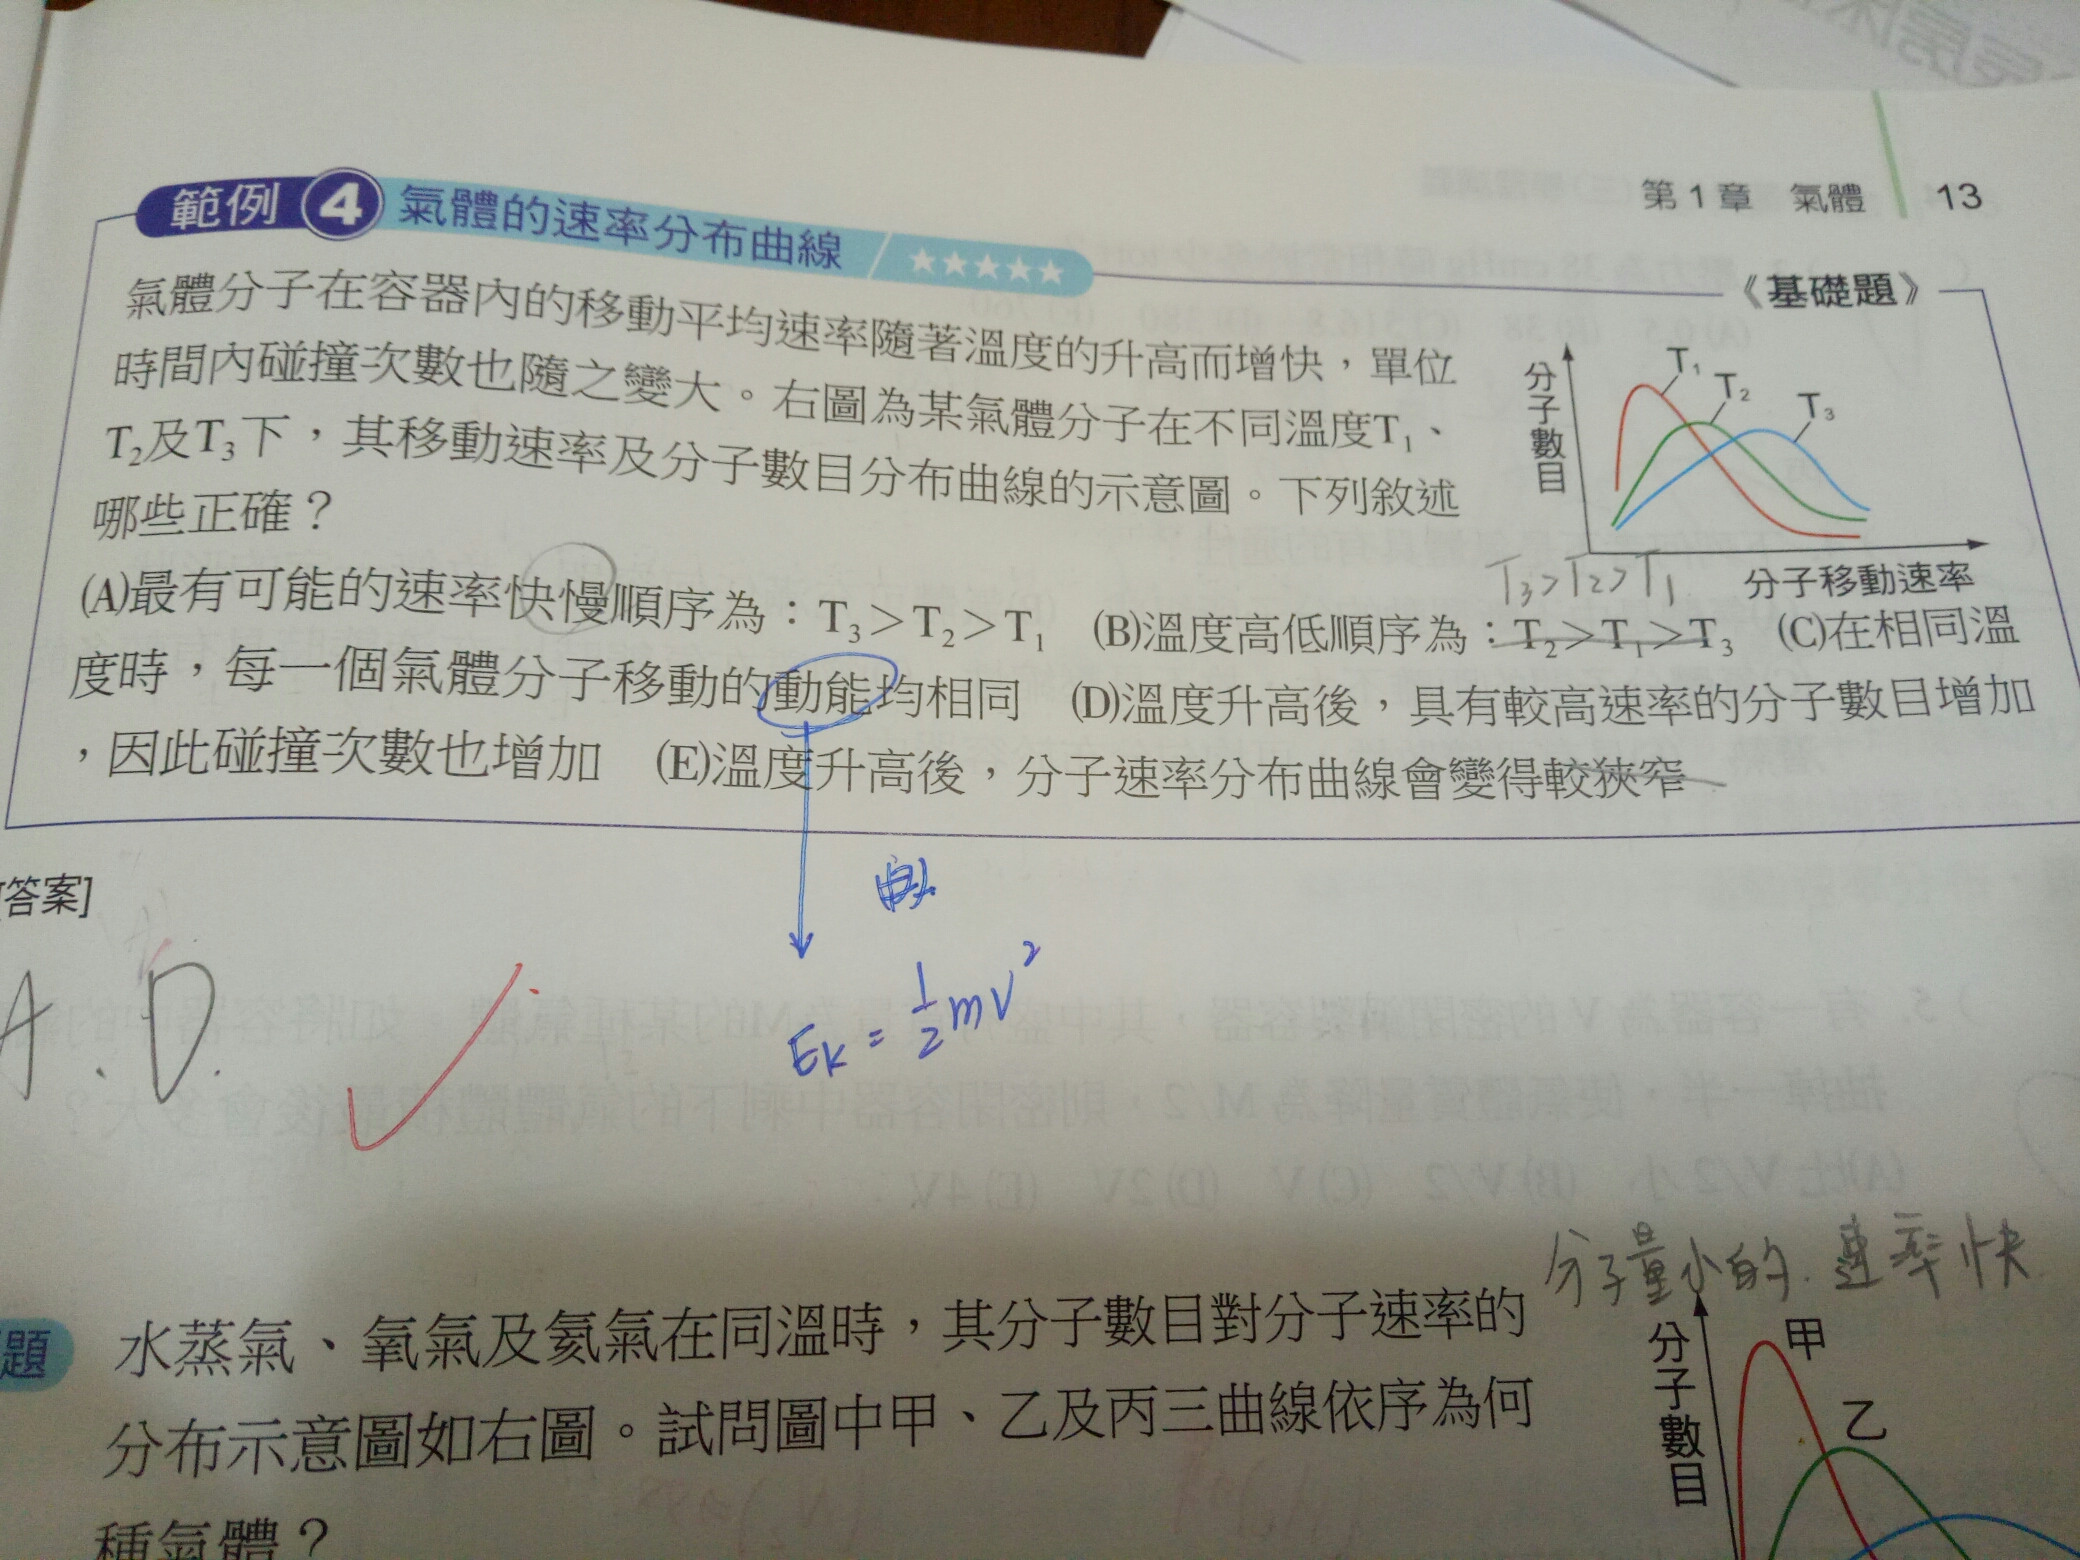 第1章 氣體 13
範例 4 氣體的速率分布曲線 ★★★★★
《基礎題》
氣體分子在容器內的移動平均速率隨著溫度的升高而增快，單位
時間內碰撞次數也隨之變大。右圖為某氣體分子在不同溫度T₁、
T₂及T₃下，其移動速率及分子數目分布曲線的示意圖。下列敘述
哪些正確？
分子數目
T₁
T₂
T₃
分子移動速率
T₃>T₂>T₁
(A)最有可能的速率快慢順序為：T₃＞T₂＞T₁ (B)溫度高低順序為：T₂＞T₁＞T₃ (C)在相同溫
度時，每一個氣體分子移動的動能均相同 (D)溫度升高後，具有較高速率的分子數目增加
，因此碰撞次數也增加 (E)溫度升高後，分子速率分布曲線會變得較狹窄
[答案]
A、D.
Eₖ = ½mv²
分子量小的.速率快.
題 水蒸氣、氧氣及氦氣在同溫時，其分子數目對分子速率的
分布示意圖如右圖。試問圖中甲、乙及丙三曲線依序為何
種氣體？
分子數目
甲
乙